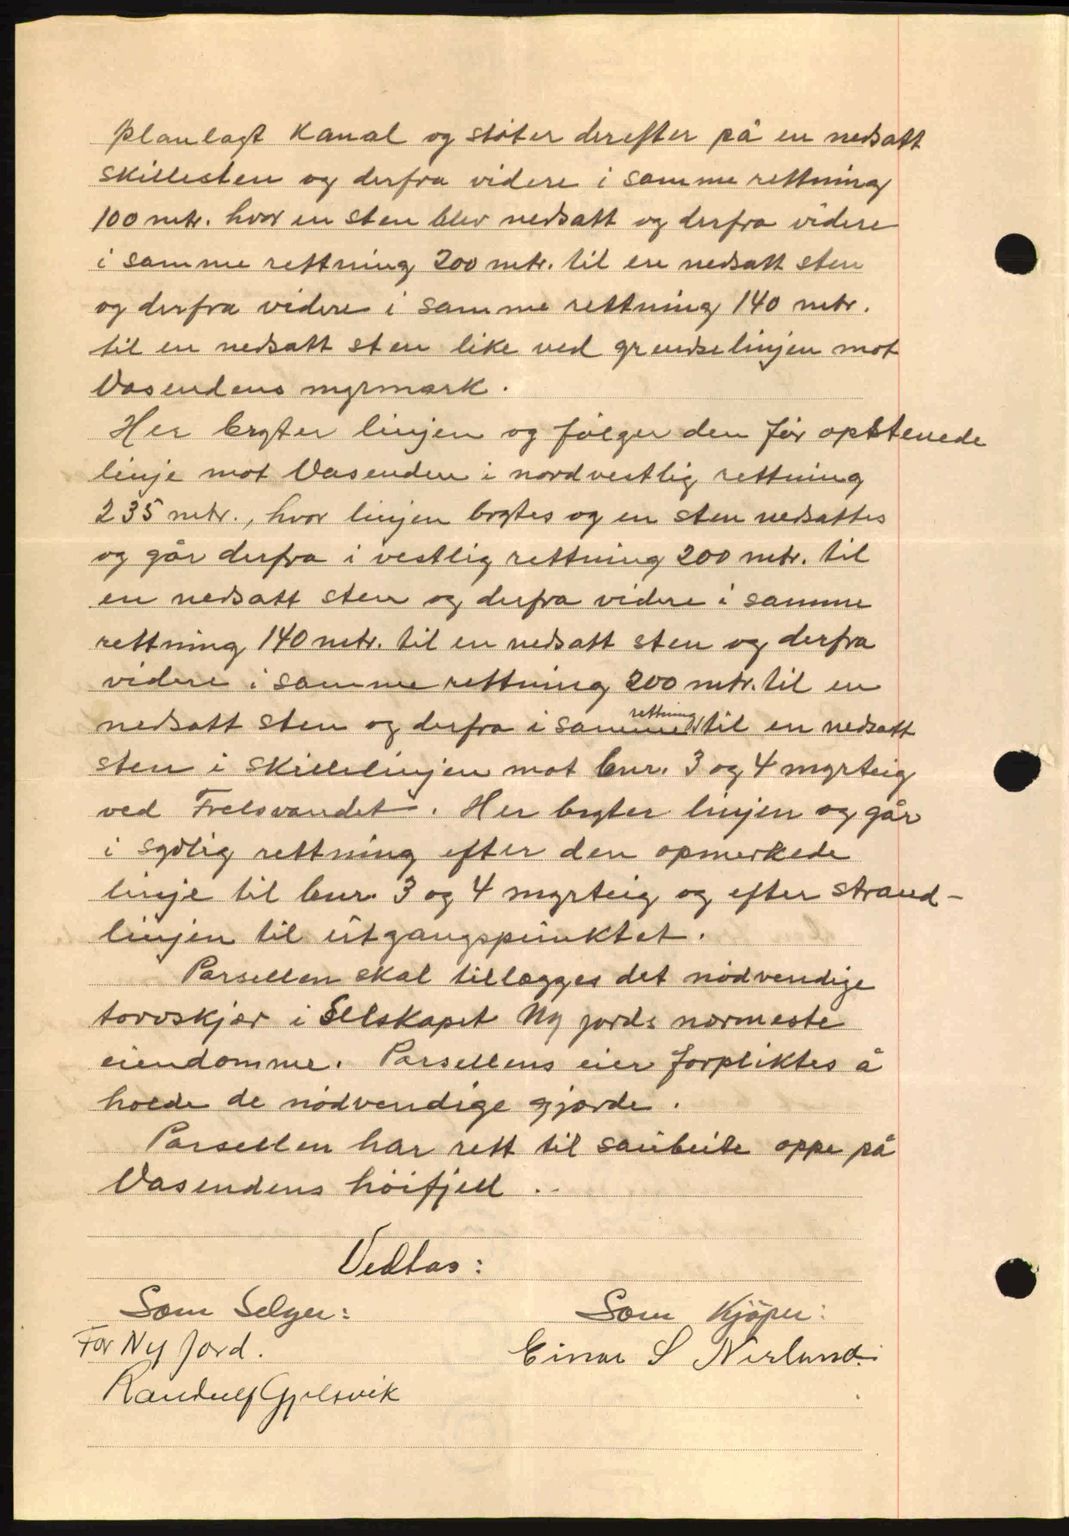 planlagt kanal og støter derefter på en nedsatt
skillesten og derfra videre i samme rettning
100 mtr. hvor en sten blev nedsatt og derfra videre
i samme rettning 200 mtr. til en nedsatt sten
og derfra videre i samme rettning 140 mtr.
til en nedsatt sten like ved grendselinjen mot
Vasendens myrmark.
Her bryter linjen og følger den før opstenede
linje mot Vasenden i nordvestlig rettning
235 mtr., hvor linjen brytes og en sten nedsattes
og går derfra i vestlig rettning 200 mtr. til
en nedsatt sten og derfra videre i samme
rettning 140 mtr. til en nedsatt sten og derfra
videre i samme rettning 200 mtr. til en
nedsatt sten og derfra i samme rettning til en nedsatt
sten i skillelinjen mot bnr. 3 og 4 myrteig
ved Frelsvandet. Her bryter linjen og går
i sydlig rettning efter den opmerkede
linje til bnr. 3 og 4 myrteig og efter strand-
linjen til utgangspunktet.
Parsellen skal tillægges det nødvendige
torvskjær i Selskapet Ny Jords nærmeste
eiendomme. Parsellens eier forpliktes å
holde de nødvendige gjærde.
Parsellen har rett til saubeite oppe på
Vasendens høifjell.
Vedtas:
Som Selger:
Som Kjøper:
For Ny Jord.
Einar S Nerlund.
Randulf Gjelsvik